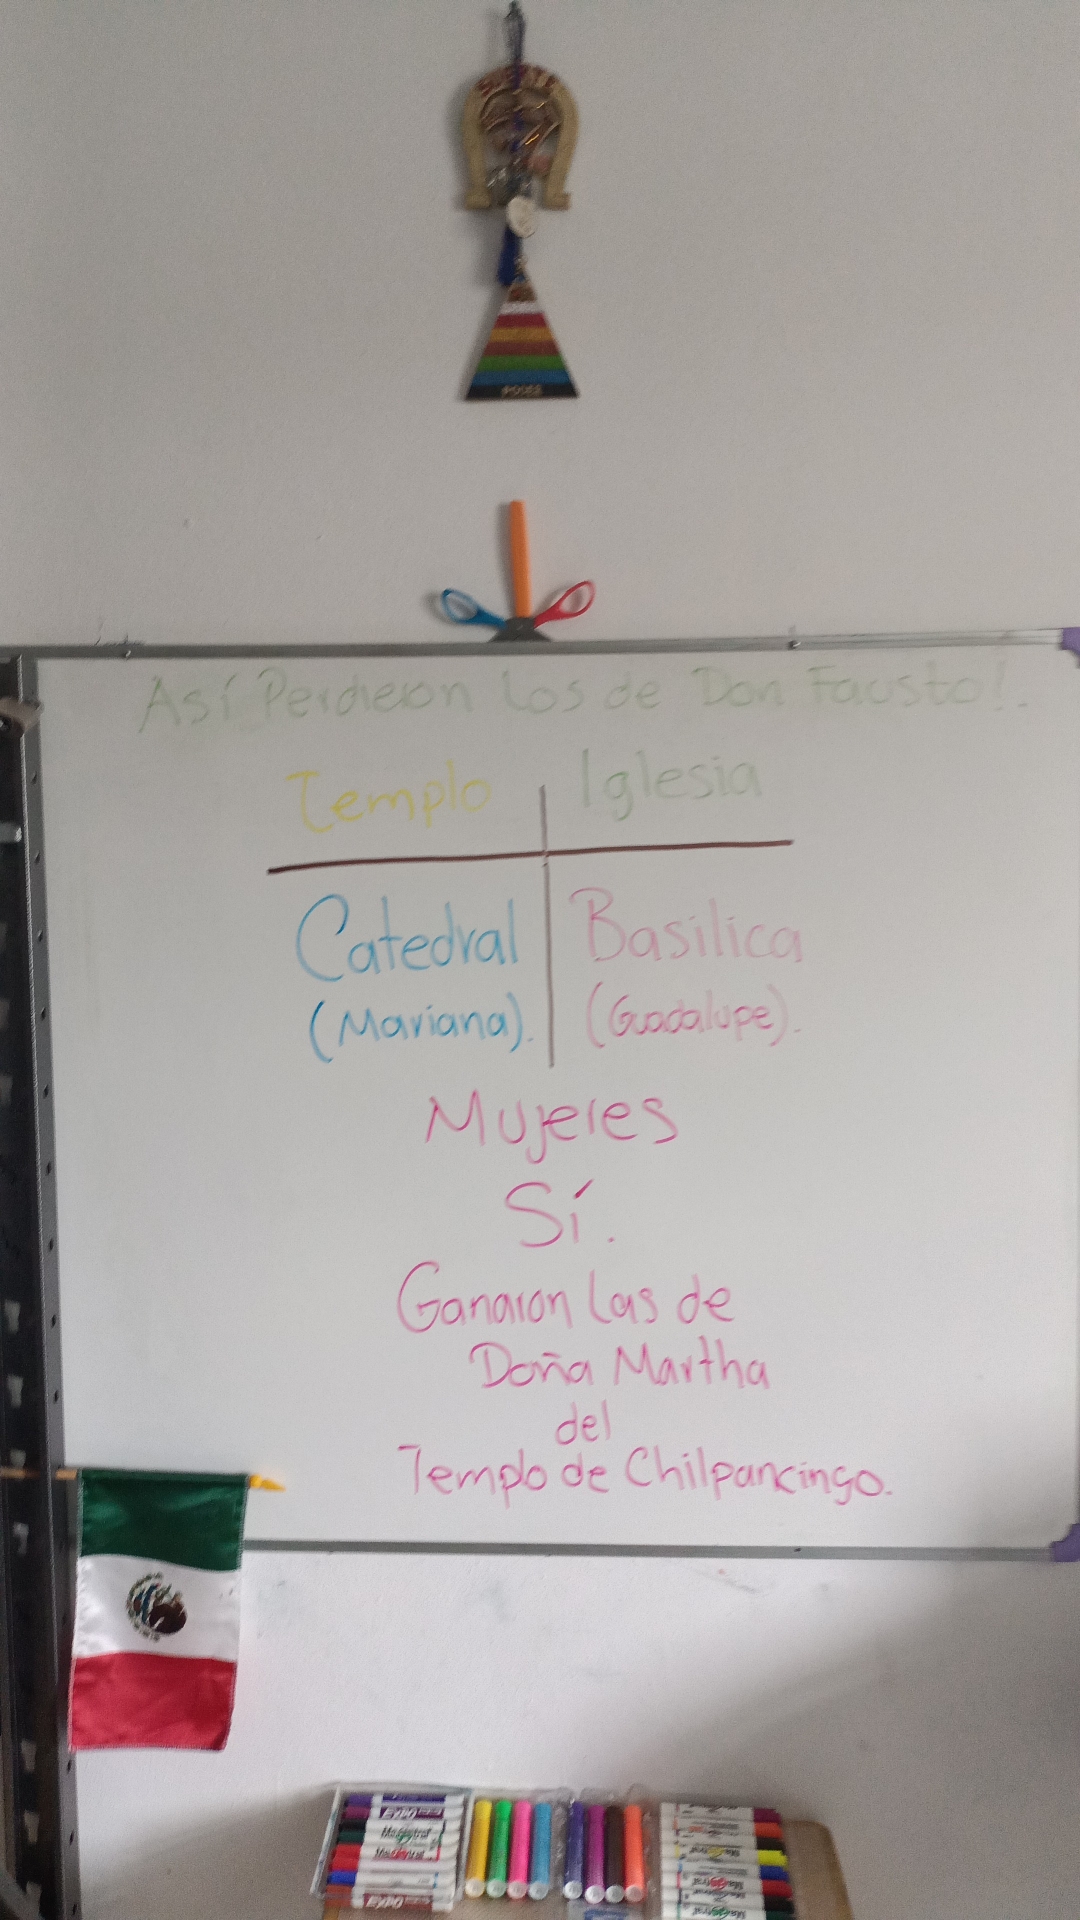 SUERTE
PODER
Así Perdieron Los de Don Fausto!.
Templo Iglesia
Catedral Basilica
(Mariana). (Guadalupe).
Mujeres
Sí.
Ganaron Las de
Doña Martha
del
Templo de Chilpancingo.
EXPO
Magistral
Magistral
EXPO